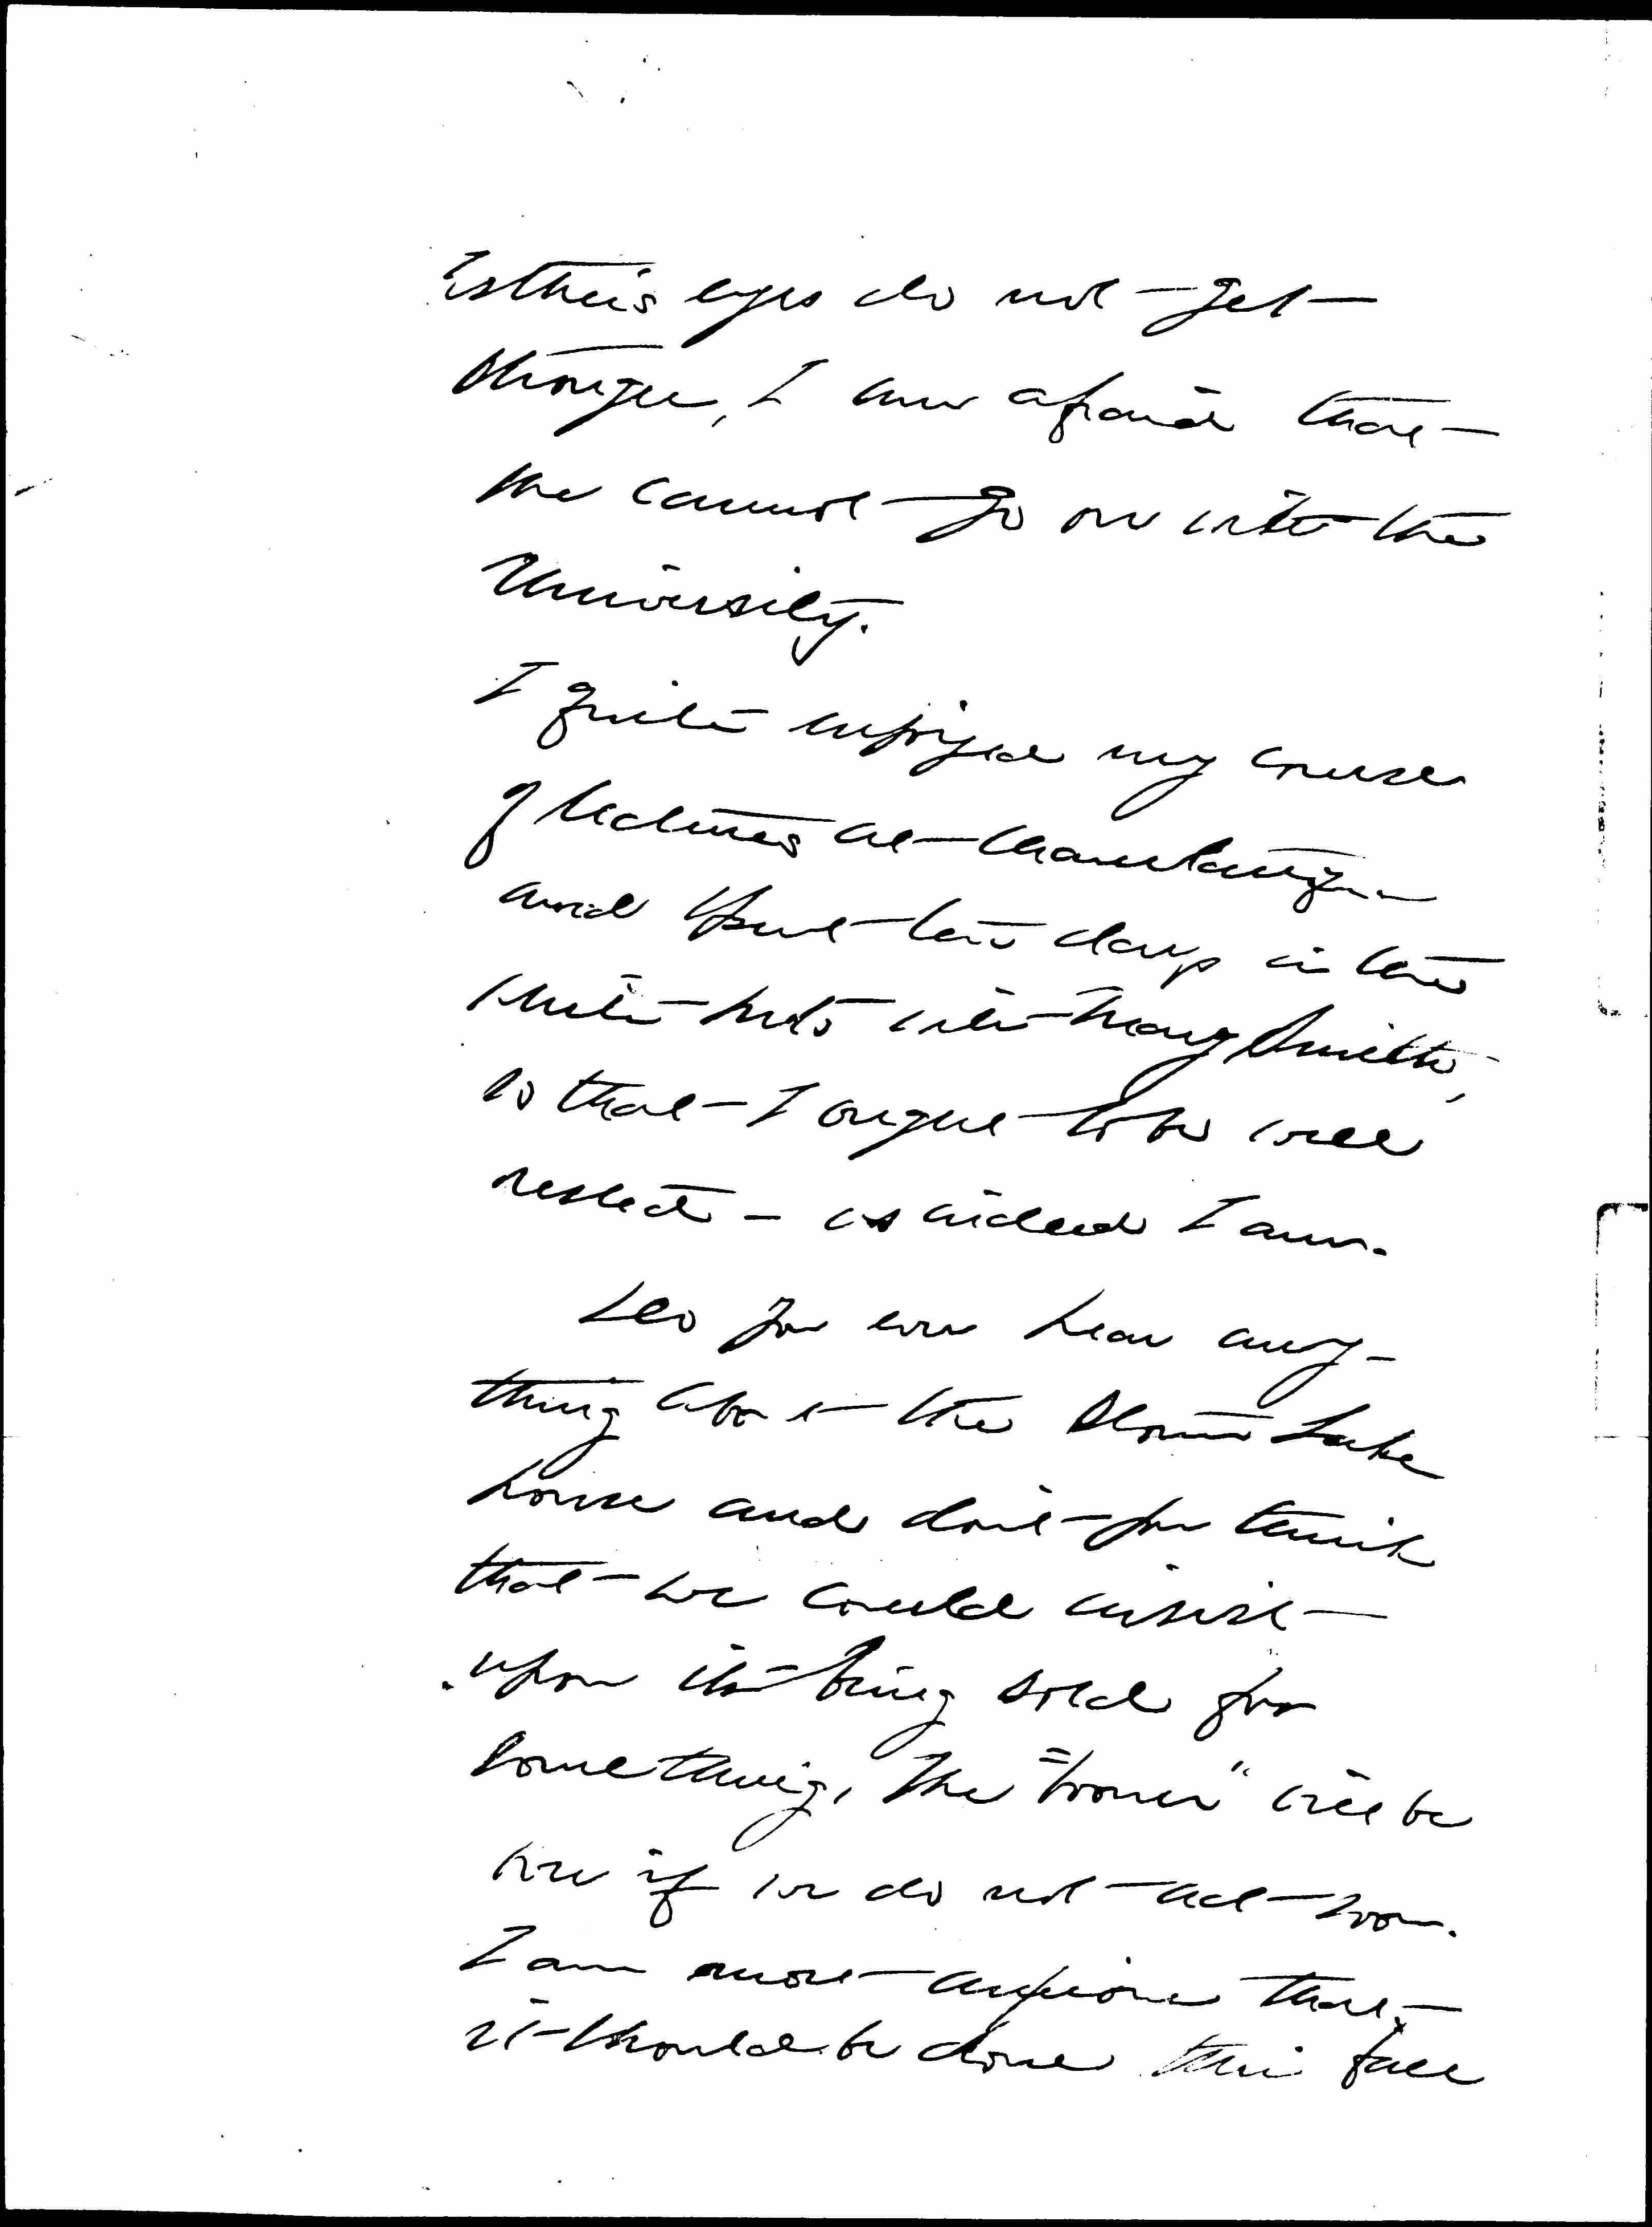 Esther's eyes do not get
stronger, I am afraid that
she cannot go on with the
University.
I quite enjoyed my course
of lectures at Chautauqua
and spent ten days in the
White Mts with Mary Smith,
so that I ought to be well
rested – as indeed I am.
Do you ever hear any-
thing about the Storm Lake
house and don't you think
that we could insist
upon its being sold for
something, the "boom" will be
over if we do not act soon.
I am most anxious that
it should be done this fall